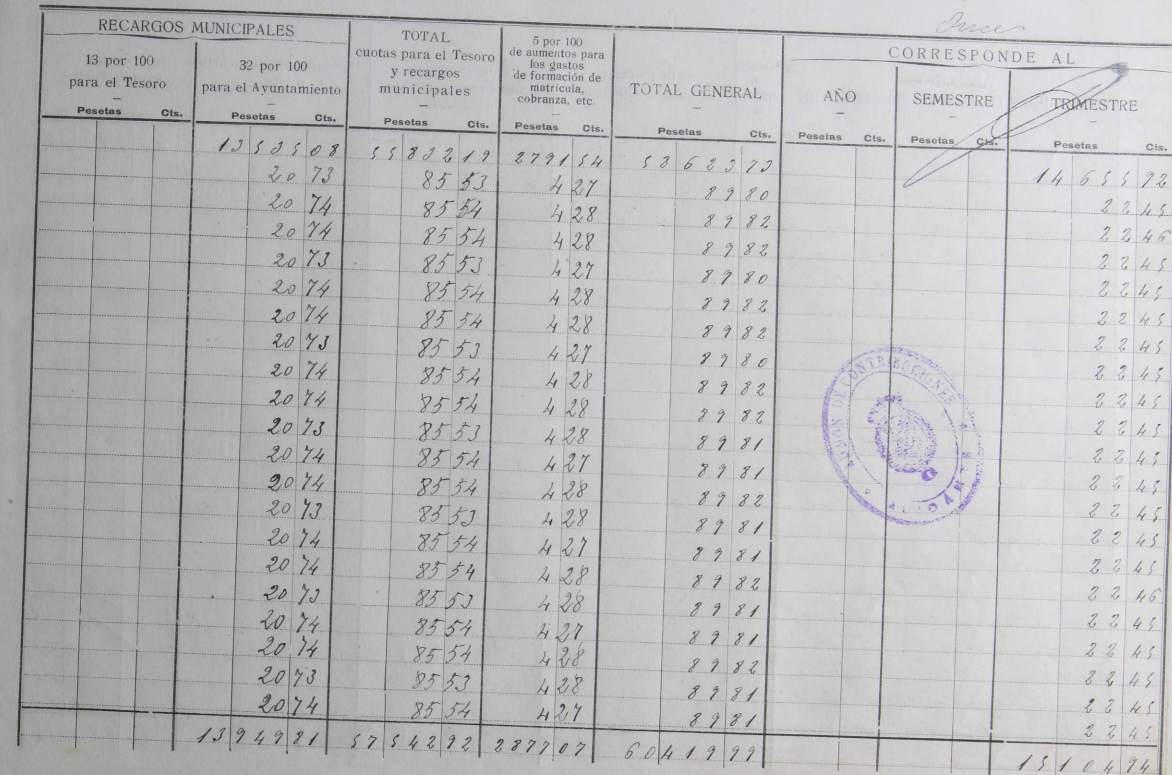 Once
RECARGOS MUNICIPALES
13 por 100 para el Tesoro
32 por 100 para el Ayuntamiento
TOTAL cuotas para el Tesoro y recargos municipales
5 por 100 de aumentos para los gastos de formación de matrícula, cobranza, etc.
TOTAL GENERAL
CORRESPONDE AL
AÑO SEMESTRE TRIMESTRE
Pesetas Cts. Pesetas Cts. Pesetas Cts. Pesetas Cts. Pesetas Cts. Pesetas Cts. Pesetas Cts. Pesetas Cts.
13535 08 55832 19 2791 54 58623 73 14655 92
20 73 85 53 4 27 89 80 22 45
20 74 85 54 4 28 89 82 22 46
20 74 85 54 4 28 89 82 22 45
20 73 85 53 4 27 89 80 22 45
20 74 85 54 4 28 89 82 22 45
20 74 85 54 4 28 89 82 22 45
20 73 85 53 4 27 89 80 22 45
20 74 85 54 4 28 89 82 22 45
20 74 85 54 4 28 89 82 22 45
20 73 85 53 4 28 89 81 22 45
20 74 85 54 4 27 89 81 22 45
20 74 85 54 4 28 89 82 22 45
20 73 85 53 4 28 89 81 22 45
20 74 85 54 4 27 89 81 22 45
20 74 85 54 4 28 89 82 22 46
20 73 85 53 4 28 89 81 22 45
20 74 85 54 4 27 89 81 22 45
20 74 85 54 4 28 89 82 22 45
20 73 85 53 4 28 89 81 22 45
20 74 85 54 4 27 89 81 22 45
13949 81 57542 92 2877 07 60419 99 15104 94
DE CONTRIBUCIONES